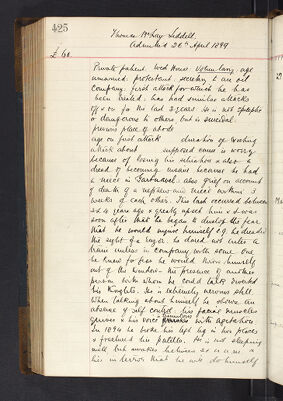 425
Thomas McKay Liddell
Admitted 26th April 1899
£60.
Private patient. West House. Voluntary. age
unmarried: protestant. secretary to an oil
company. first attack for which he has
been treated. has had similar attacks
off & on for the last 3 years. is not epileptic
or dangerous to others, but is suicidal.
previous place of abode
age on first attack duration of existing
attack about supposed cause is worry
because of losing his situation & also a
dread of becoming insane because he had
a niece in. also grief on account
of death of a nephew and niece within 3
weeks of each other. This last occurred between
3 & 4 years ago & greatly upset him & it was
soon after that he began to develop the fear
that he would injure himself e.g. he dreaded
the sight of a razor, he dared not enter a
train unless in company with some one
he knew for fear he would throw himself
out of the window. The presence of another
person with whom he could talk diverted
his thoughts. He is extremely nervous still
When talking about himself he shows an
absence of self control, his facial muscles
quiver & his voice trembles with agitation
In 1894 he broke his left leg in two places
& fractured his patella. He is not sleeping
well but awakes between
his is that he will do himself